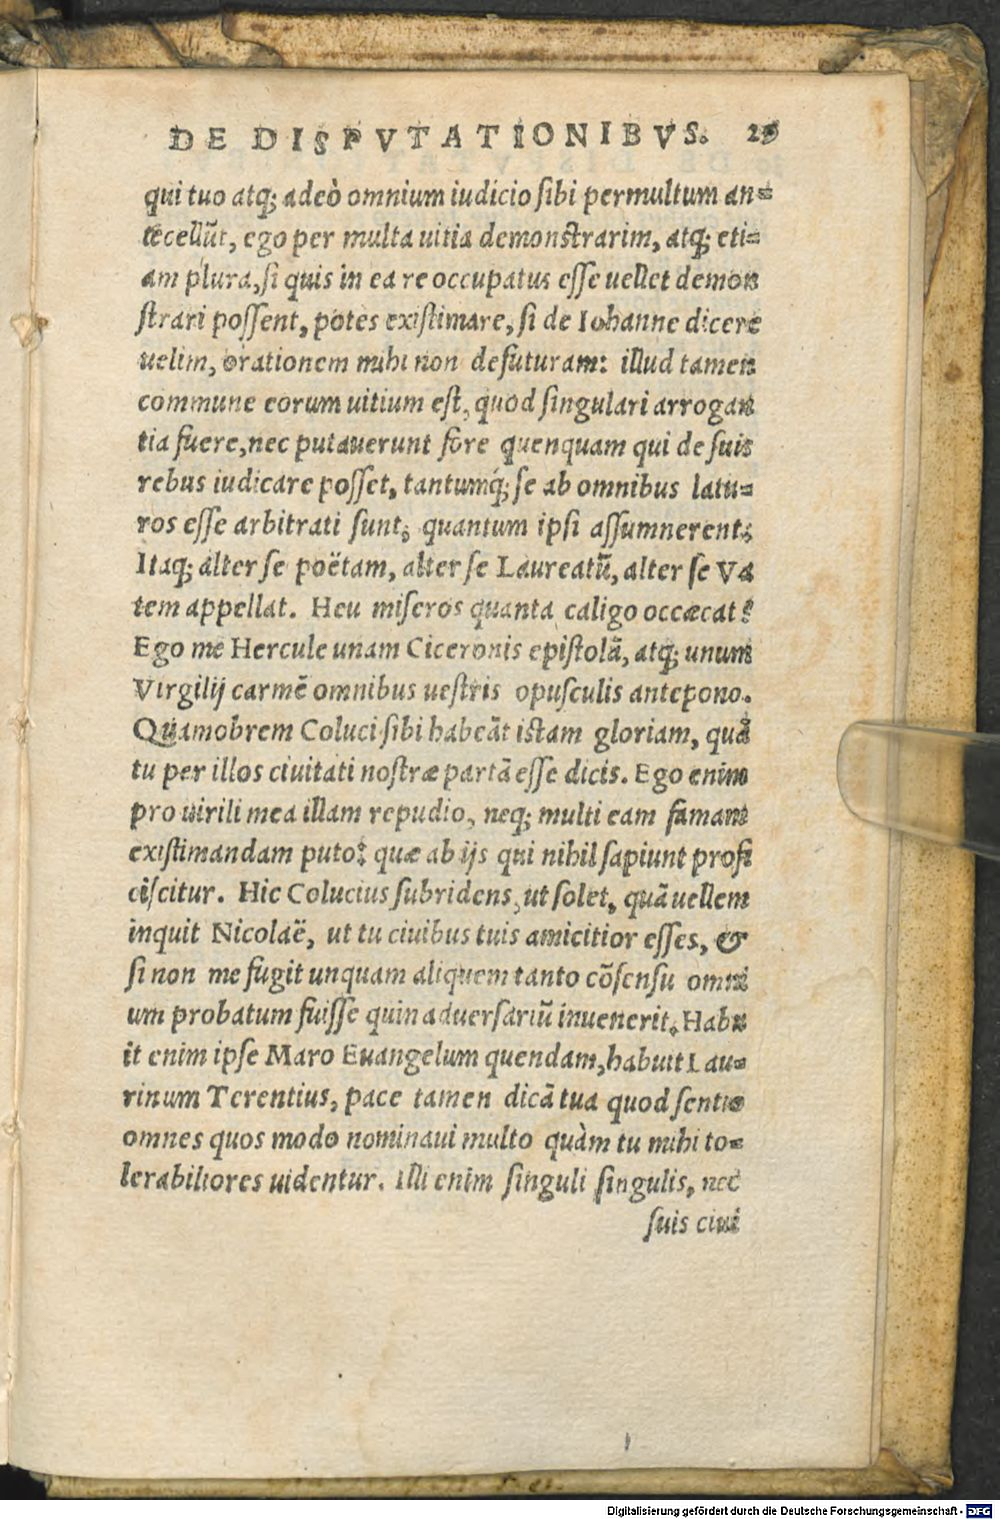 DE DISPVTATIONIBVS. 29
qui tuo atq; adeò omnium iudicio sibi permultum an=
tecellūt, ego per multa uitia demonstrarim, atq; eti=
am plura, si quis in ea re occupatus esse uellet demon
strari possent, potes existimare, si de Iohanne dicere
uelim, orationem mihi non defuturam: illud tamen
commune eorum uitium est, quod singulari arrogan
tia fuere, nec putauerunt fore quenquam qui de suis
rebus iudicare posset, tantumq́; se ab omnibus latu=
ros esse arbitrati sunt; quantum ipsi assumnerent:
Itaq; alter se poëtam, alter se Laureatū, alter se Va
tem appellat. Heu miseros quanta caligo occæcat?
Ego me Hercule unam Ciceronis epistolā, atq; unum
Virgilij carmē omnibus uestris opusculis antepono.
Quamobrem Coluci sibi habeāt istam gloriam, quā
tu per illos ciuitati nostræ partā esse dicis. Ego enim
pro uirili mea illam repudio, neq; multi eam famam
existimandam puto: quæ ab ijs qui nihil sapiunt profi
ciscitur. Hic Colucius subridens, ut solet, quā uellem
inquit Nicolaë, ut tu ciuibus tuis amicitior esses, &
si non me fugit unquam aliquem tanto cōsensu omni
um probatum fuisse quin aduersariū inuenerit. Habu
it enim ipse Maro Euangelum quendam, habuit Lau=
rinum Terentius, pace tamen dicā tua quod sentio
omnes quos modo nominaui multo quàm tu mihi to=
lerabiliores uidentur. Illi enim singuli singulis, nec
suis ciui
Digitalisierung gefördert durch die Deutsche Forschungsgemeinschaft - DFG